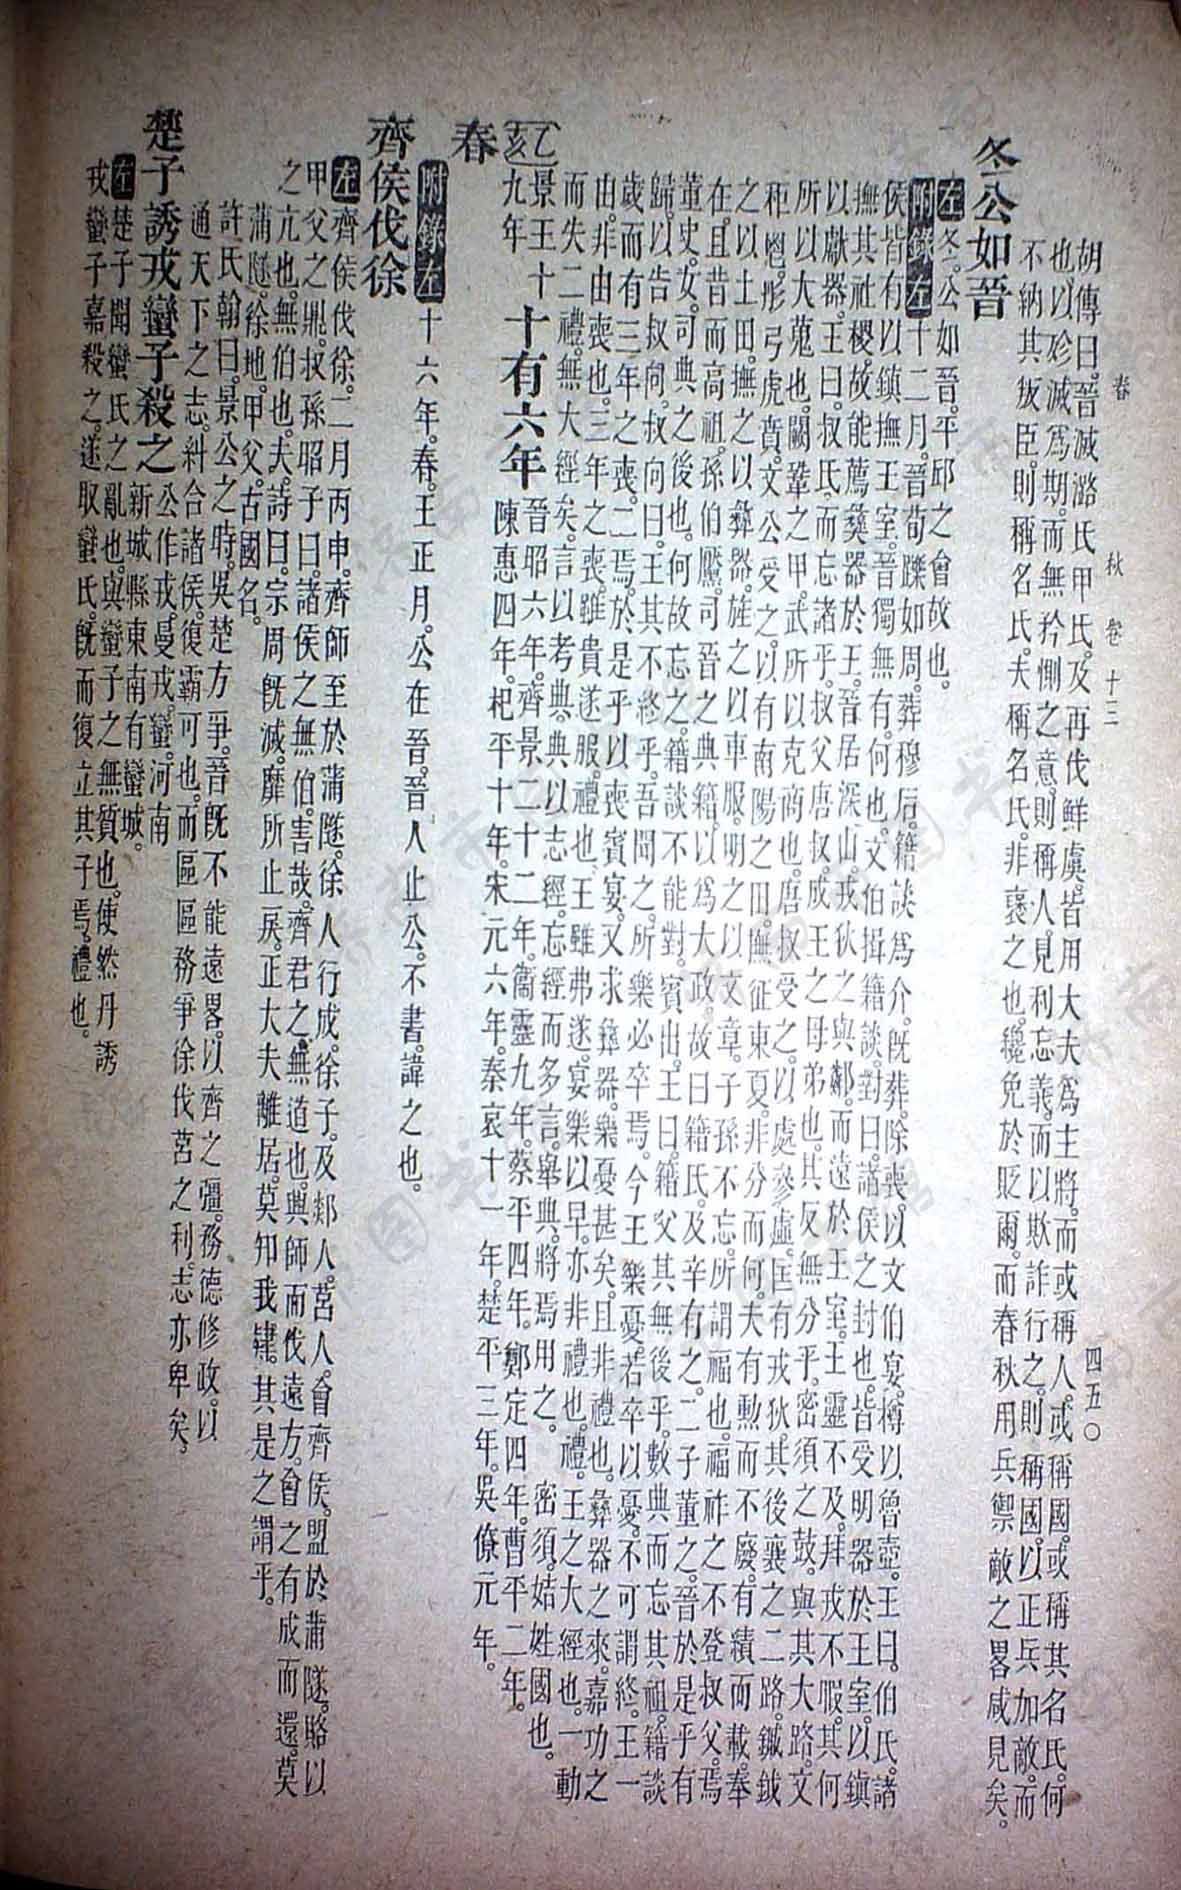 春　秋　卷十三　四五〇
胡傳曰。晉滅潞氏甲氏。及再伐鮮虞。皆用大夫爲主將。而或稱人。或稱國。或稱其名氏。何
也。以殄滅爲期。而無矜惻之意。則稱人。見利忘義。而以欺詐行之。則稱國。以正兵加敵。而
不納其叛臣。則稱名氏。夫稱名氏。非襃之也。纔免於貶爾。而春秋用兵禦敵之畧咸見矣。
冬公如晉
左冬。公如晉。平邱之會故也。
附錄左十二月。晉荀躒如周。葬穆后。籍談爲介。既葬。除喪。以文伯宴。樽以魯壺。王曰。伯氏。諸
侯皆有以鎮撫王室。晉獨無有。何也。文伯揖籍談。對曰。諸侯之封也。皆受明器於王室。以鎮
撫其社稷。故能薦彝器於王。晉居深山。戎狄之與鄰。而遠於王室。王靈不及。拜戎不暇。其何
以獻器。王曰。叔氏。而忘諸乎。叔父唐叔。成王之母弟也。其反無分乎。密須之鼓。與其大路。文
所以大蒐也。闕鞏之甲。武所以克商也。唐叔受之。以處參虛。匡有戎狄。其後襄之二路。鏚鉞
秬鬯。彤弓虎賁。文公受之。以有南陽之田。撫征東夏。非分而何。夫有勳而不廢。有績而載。奉
之以土田。撫之以彝器。旌之以車服。明之以文章。子孫不忘。所謂福也。福祚之不登叔父。焉
在。且昔而高祖。孫伯黶。司晉之典籍。以爲大政。故曰籍氏。及辛有之二子董之。晉於是乎有
董史。女。司典之後也。何故忘之。籍談不能對。賓出。王曰。籍父其無後乎。數典而忘其祖。籍談
歸。以告叔向。叔向曰。王其不終乎。吾聞之。所樂必卒焉。今王樂憂。若卒以憂。不可謂終。王一
歲而有三年之喪。二焉。於是乎以喪賓宴。又求彝器。樂憂甚矣。且非禮也。彝器之來。嘉功之
由。非由喪也。三年之喪。雖貴遂服。禮也。王雖弗遂。宴樂以早。亦非禮也。禮。王之大經也。一動
而失二禮。無大經矣。言以考典。典以志經。忘經而多言。舉典。將焉用之。　密須。姞姓國也。
乙亥景王十九年
十有六年晉昭六年。齊景二十二年。衞靈九年。蔡平四年。鄭定四年。曹平二年。
陳惠四年。杞平十年。宋元六年。秦哀十一年。楚平三年。吳僚元年。
春
附錄左十六年。春。王正月。公在晉。晉人止公。不書。諱之也。
齊侯伐徐
左齊侯伐徐。二月丙申。齊師至於蒲隧。徐人行成。徐子。及郯人。莒人。會齊侯。盟於蒲隧。賂以
甲父之鼎。叔孫昭子曰。諸侯之無伯。害哉。齊君之無道也。興師而伐遠方。會之有成而還。莫
之亢也。無伯也。夫。詩曰。宗周既滅。靡所止戾。正大夫離居。莫知我肄。其是之謂乎。
蒲隧。徐地。甲父。古國名。
許氏翰曰。景公之時。吳楚方爭。晉既不能遠畧。以齊之彊。務德修政。以
通天下之志。糾合諸侯。復霸可也。而區區務爭徐伐莒之利。志亦卑矣。
楚子誘戎蠻子殺之公作戎曼。戎蠻。河南
新城縣東南有蠻城。
左楚子聞蠻氏之亂也。與蠻子之無質也。使然丹誘
戎蠻子嘉殺之。遂取蠻氏。既而復立其子焉。禮也。